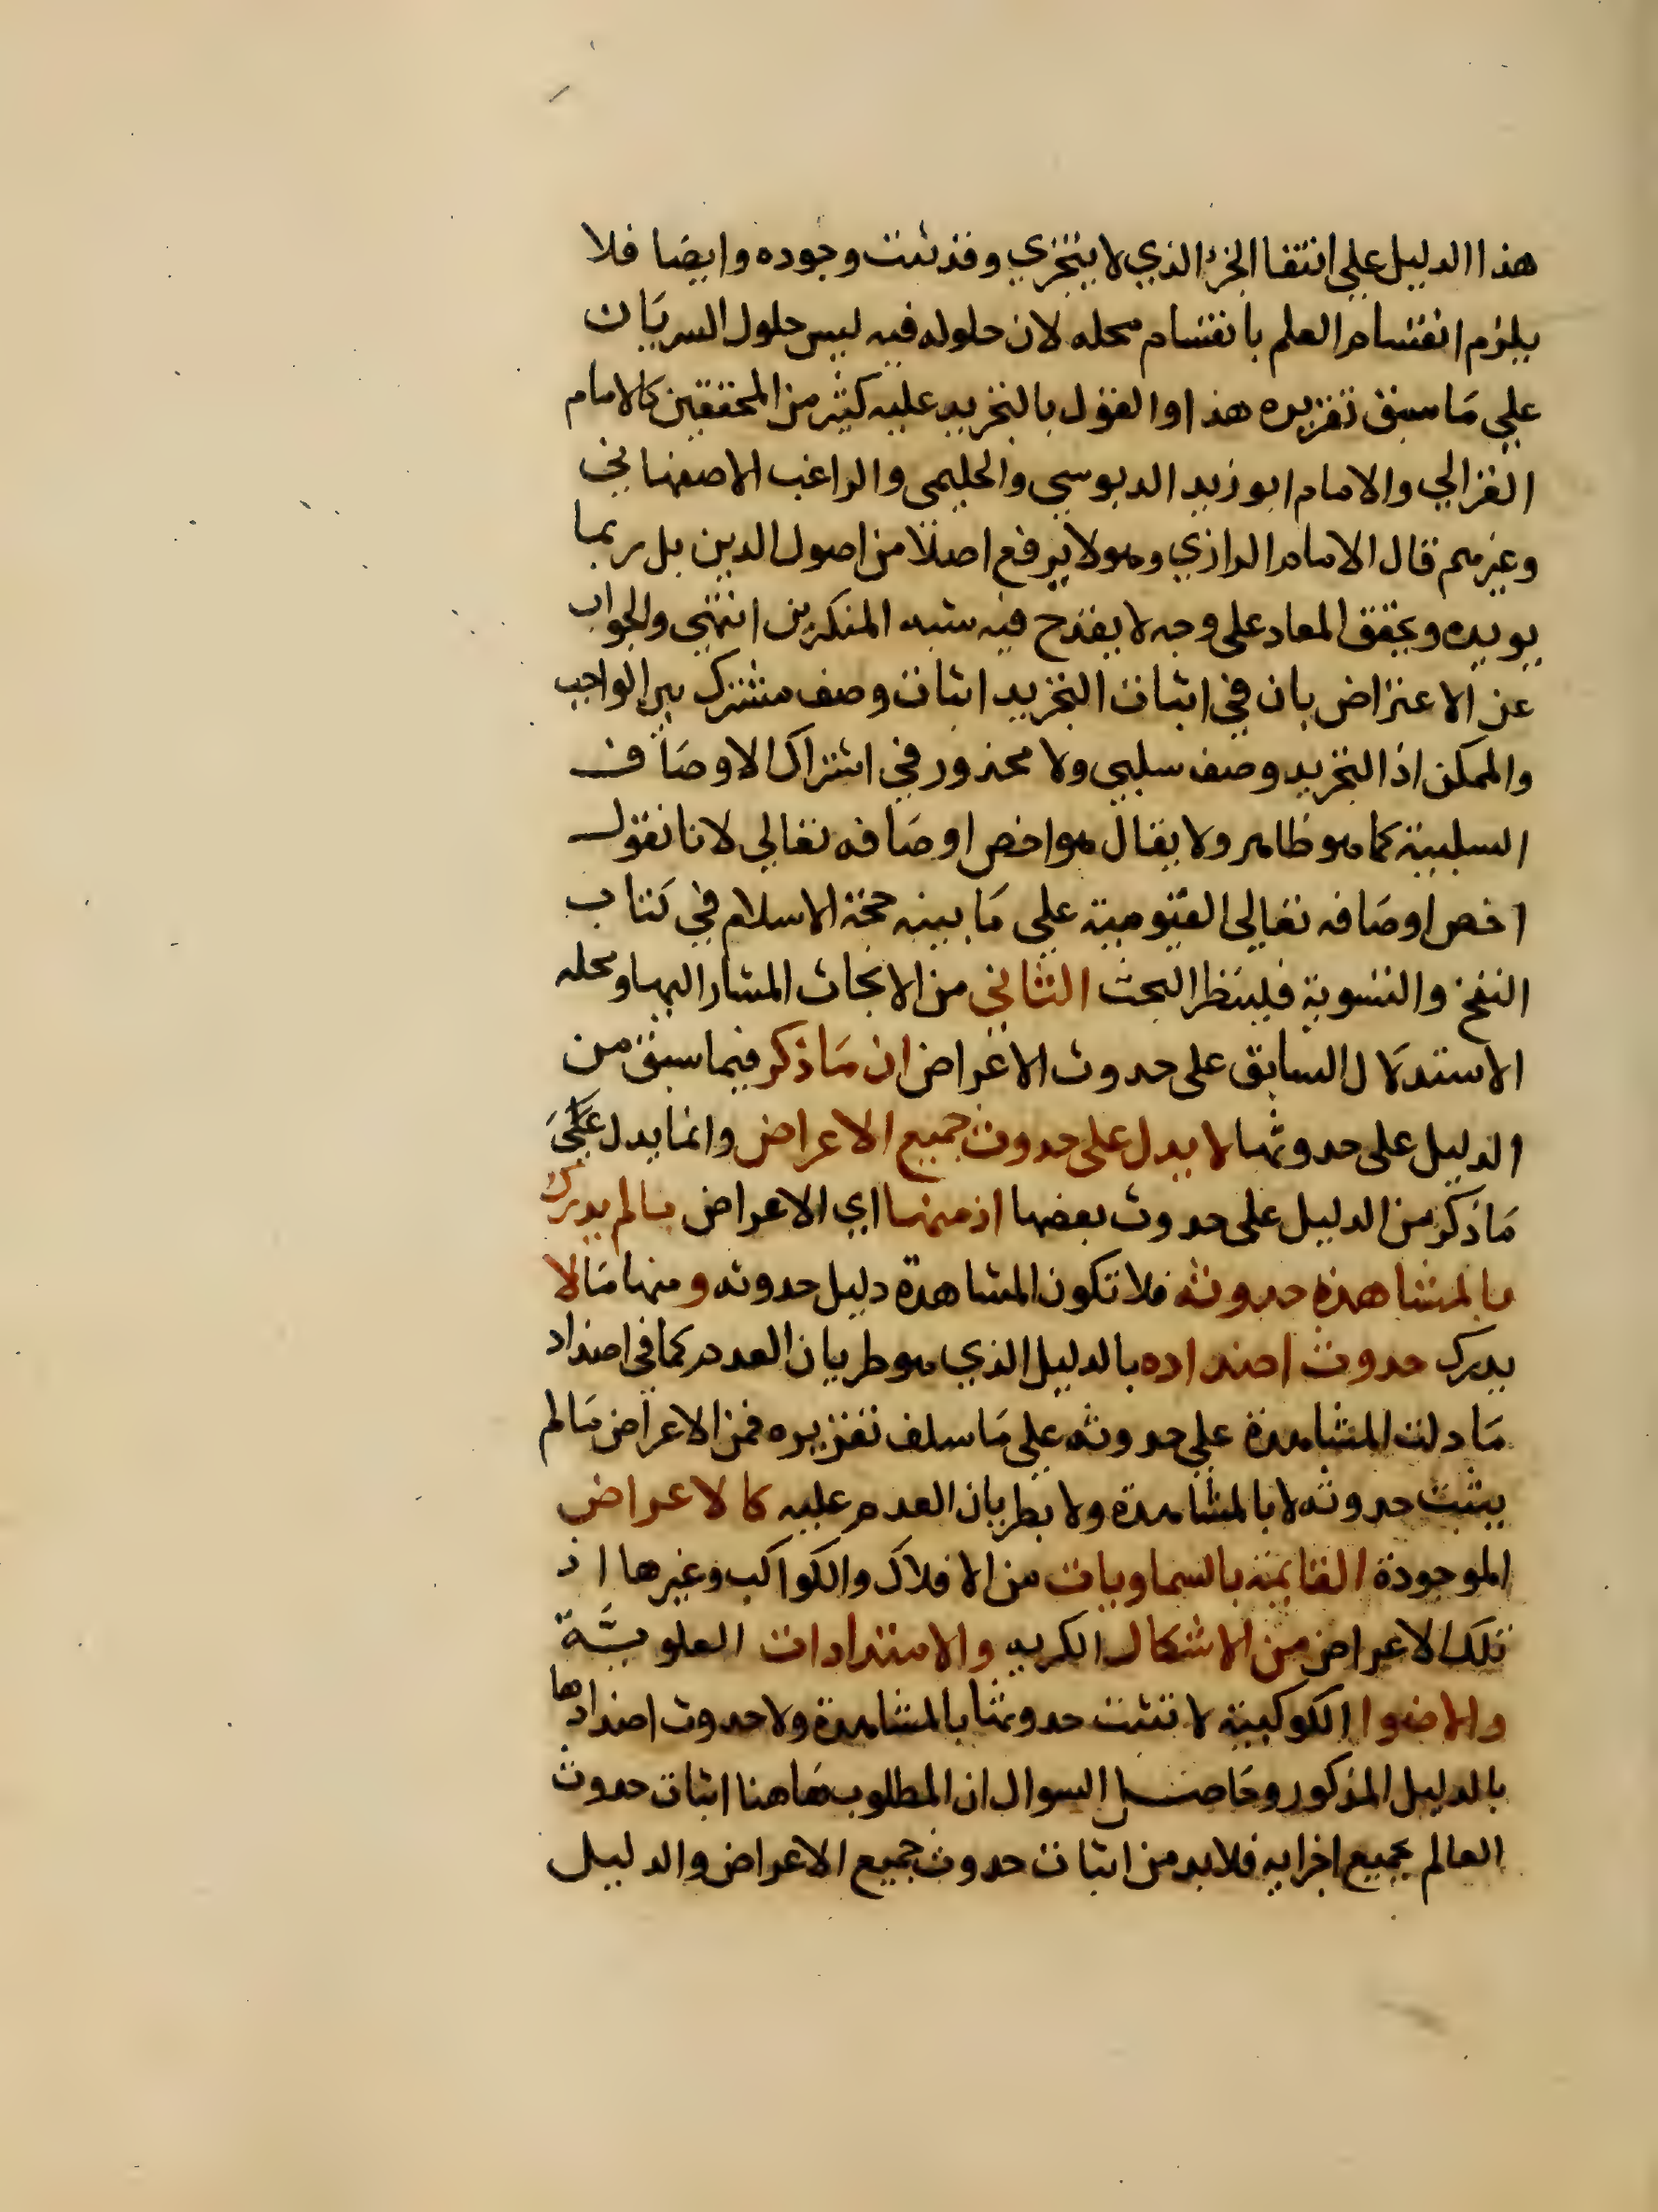 هذا الدليل علي انتفا الجزء الذي لا يتجزي وقد ثبت وجوده وايضا فلا
يلزم انقسام العلم بانقسام محله لان حلوله فيه ليس حلول السريان
علي ما سبق تقريره هذا والقول بالتجريد عليه كثير من المحققين كالامام
الغزالي والامام ابو زيد الدبوسي والحليمى والراغب الاصفهاني
وغيرهم قال الامام الرازي وهو لا يرفع اصلا من اصول الدين بل ربما
يويده ويحقق المعاد على وجه لا يقدح فيه شبه المنكرين انتهي والجواب
عن الاعتراض بان في اثبات التجريد اثبات وصف مشترك بين الواجب
والممكن اذ التجريد وصف سلبي ولا محذور في اشتراك الاوصاف
السلبية كما هو ظاهر ولا يقال هو اخص اوصافه تعالي لانا نقول
اخص اوصافه تعالي القيومية علي ما بينه حجة الاسلام في كتاب
النفخ والتسوية فلينظر البحث الثاني من الابحاث المشار اليها ومحله
الاستدلال السابق على حدوث الاعراض ان ما ذكر فيما سبق من
الدليل على حدوثها لا يدل على حدوث جميع الاعراض وانما يدل علي
ما ذكر من الدليل على حدوث بعضها اذ منها اي الاعراض ما لم يدرك
بالمشاهدة حدوثه فلا تكون المشاهدة دليل حدوثه ومنها ما لا
يدرك حدوث اضداده بالدليل الذي هو طريان العدم كما في اضداد
ما دلت المشاهدة علي حدوثه علي ما سلف تقريره فمن الاعراض ما لم
يثبت حدوثه لا بالمشاهدة ولا بطريان العدم عليه كالاعراض
الموجودة القايمة بالسماويات من الافلاك والكواكب وغيرها اذ
تلك الاعراض من الاشكال الكريه والامتدادات العلوية
والاضوا الكوكبية لا تثبت حدوثها بالمشاهدة ولا حدوث اضدادها
بالدليل المذكور وحاصل السوال ان المطلوب هاهنا اثبات حدوث
العالم بجميع اجزايه فلا بد من اثبات حدوث جميع الاعراض والدليل